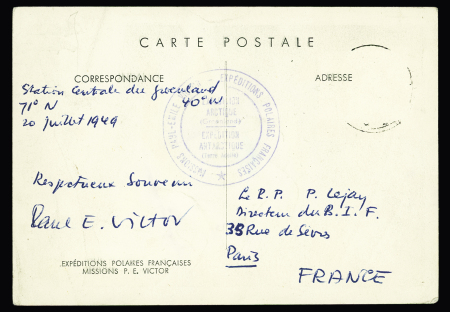 CARTE POSTALE
CORRESPONDANCE
ADRESSE
Station Centrale du Groenland
71° N 40° W
20 juillet 1949
EXPÉDITIONS POLAIRES FRANÇAISES
MISSIONS PAUL-EMILE
EXPÉDITION
ARCTIQUE
EXPÉDITION
ANTARCTIQUE
Respectueux Souvenir
Paul E. Victor
Le R. P. P. Lejay
Directeur du B. I. F.
38 Rue de Sèvres
Paris
FRANCE
EXPÉDITIONS POLAIRES FRANÇAISES
MISSIONS P. E. VICTOR